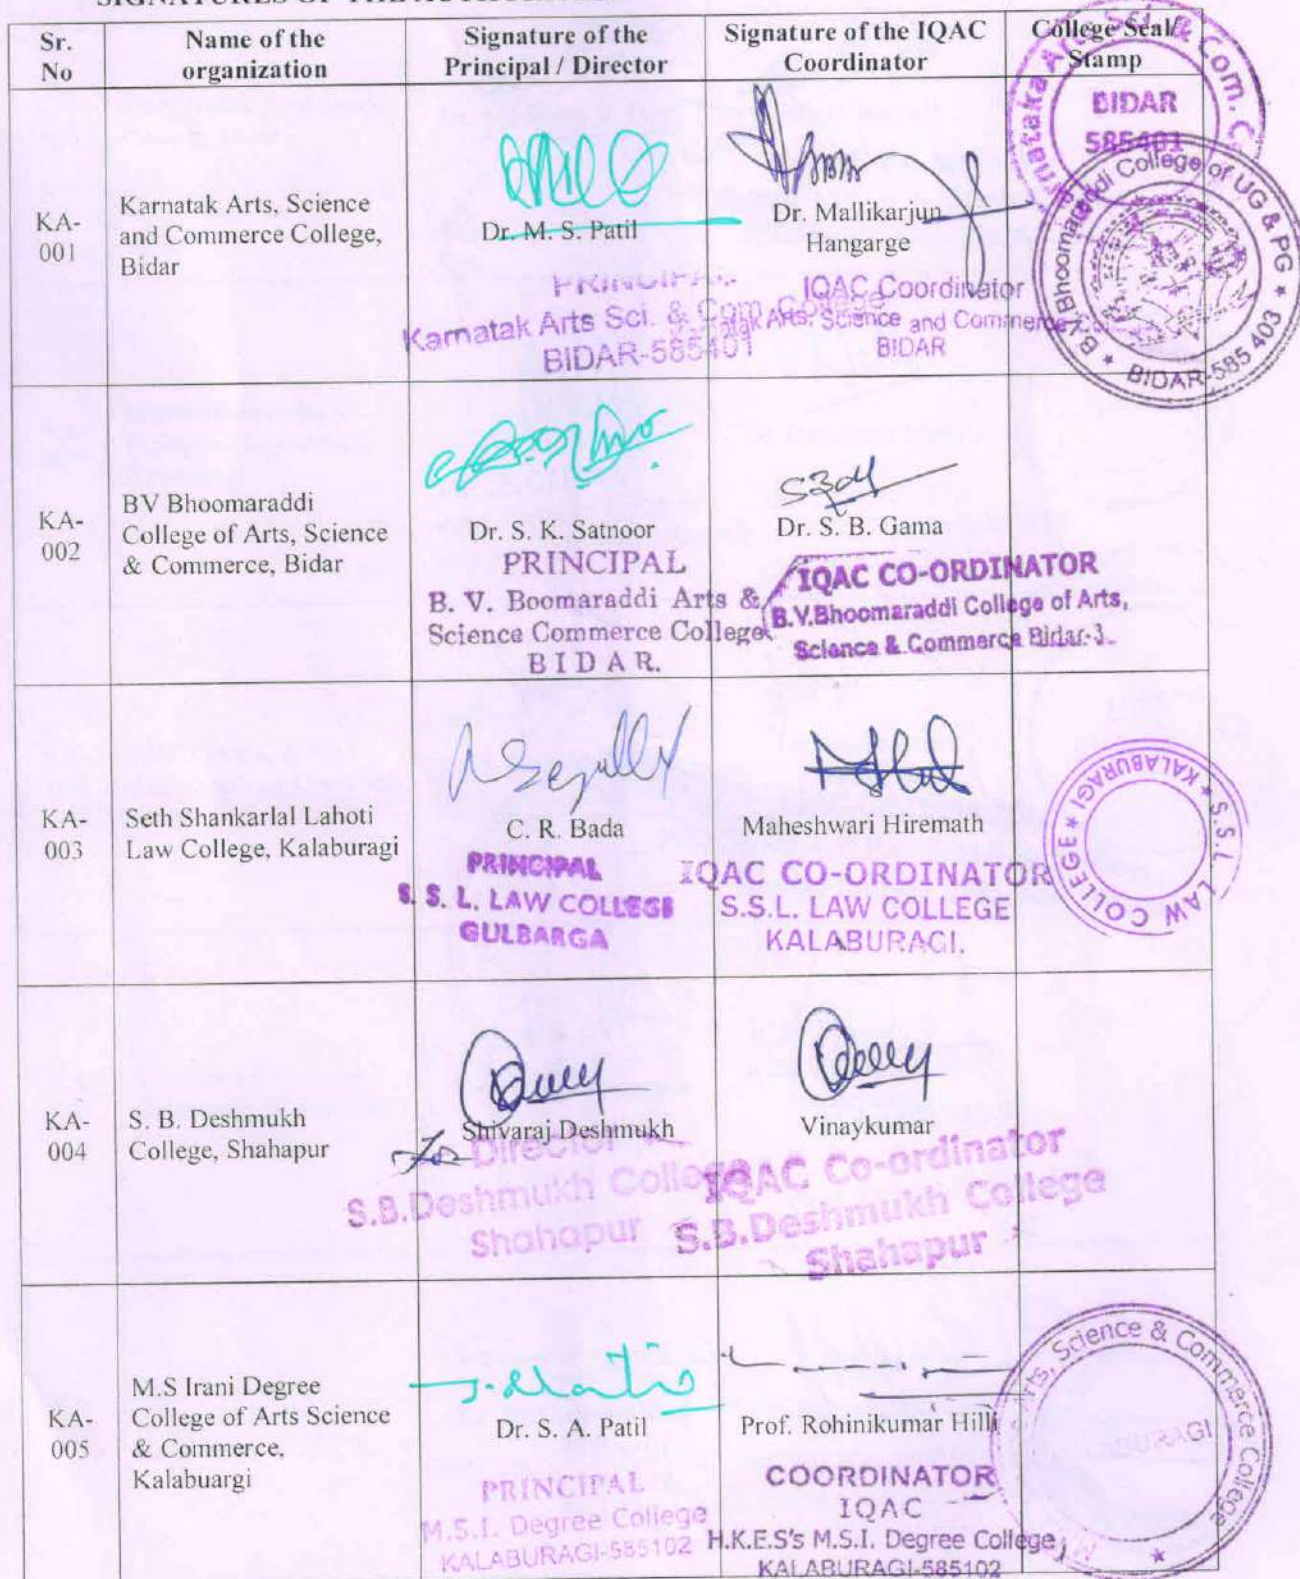 Sr.
No
Name of the
organization
Signature of the
Principal / Director
Signature of the IQAC
Coordinator
College Seal/
Stamp
KA-
001
Karnatak Arts, Science
and Commerce College,
Bidar
Dr. M. S. Patil
PRINCIPAL
Karnatak Arts Sci. & Com. College
BIDAR-585401
Dr. Mallikarjun
Hangarge
IQAC Coordinator
Arts, Science and Commerce
BIDAR
Arts Sci. & Com.
BIDAR
585401
B.V. Bhoomaraddi College of UG & PG
BIDAR-585 403
KA-
002
BV Bhoomaraddi
College of Arts, Science
& Commerce, Bidar
Dr. S. K. Satnoor
PRINCIPAL
B. V. Boomaraddi Arts &
Science Commerce College
BIDAR.
Dr. S. B. Gama
IQAC CO-ORDINATOR
B.V.Bhoomaraddi College of Arts,
Science & Commerce Bidar-3.
KA-
003
Seth Shankarlal Lahoti
Law College, Kalaburagi
C. R. Bada
PRINCIPAL
S. S. L. LAW COLLEGE
GULBARGA
Maheshwari Hiremath
IQAC CO-ORDINATOR
S.S.L. LAW COLLEGE
KALABURAGI.
S.S.L. LAW COLLEGE * KALABURAGI *
KA-
004
S. B. Deshmukh
College, Shahapur
Shivaraj Deshmukh
For Director
S.B.Deshmukh College
Shahapur
Vinaykumar
IQAC Co-ordinator
S.B.Deshmukh College
Shahapur
KA-
005
M.S Irani Degree
College of Arts Science
& Commerce,
Kalabuargi
Dr. S. A. Patil
PRINCIPAL
M.S.I. Degree College
KALABURAGI-585102
Prof. Rohinikumar Hilli
COORDINATOR
IQAC
H.K.E.S's M.S.I. Degree College
KALABURAGI-585102
Arts, Science & Commerce College